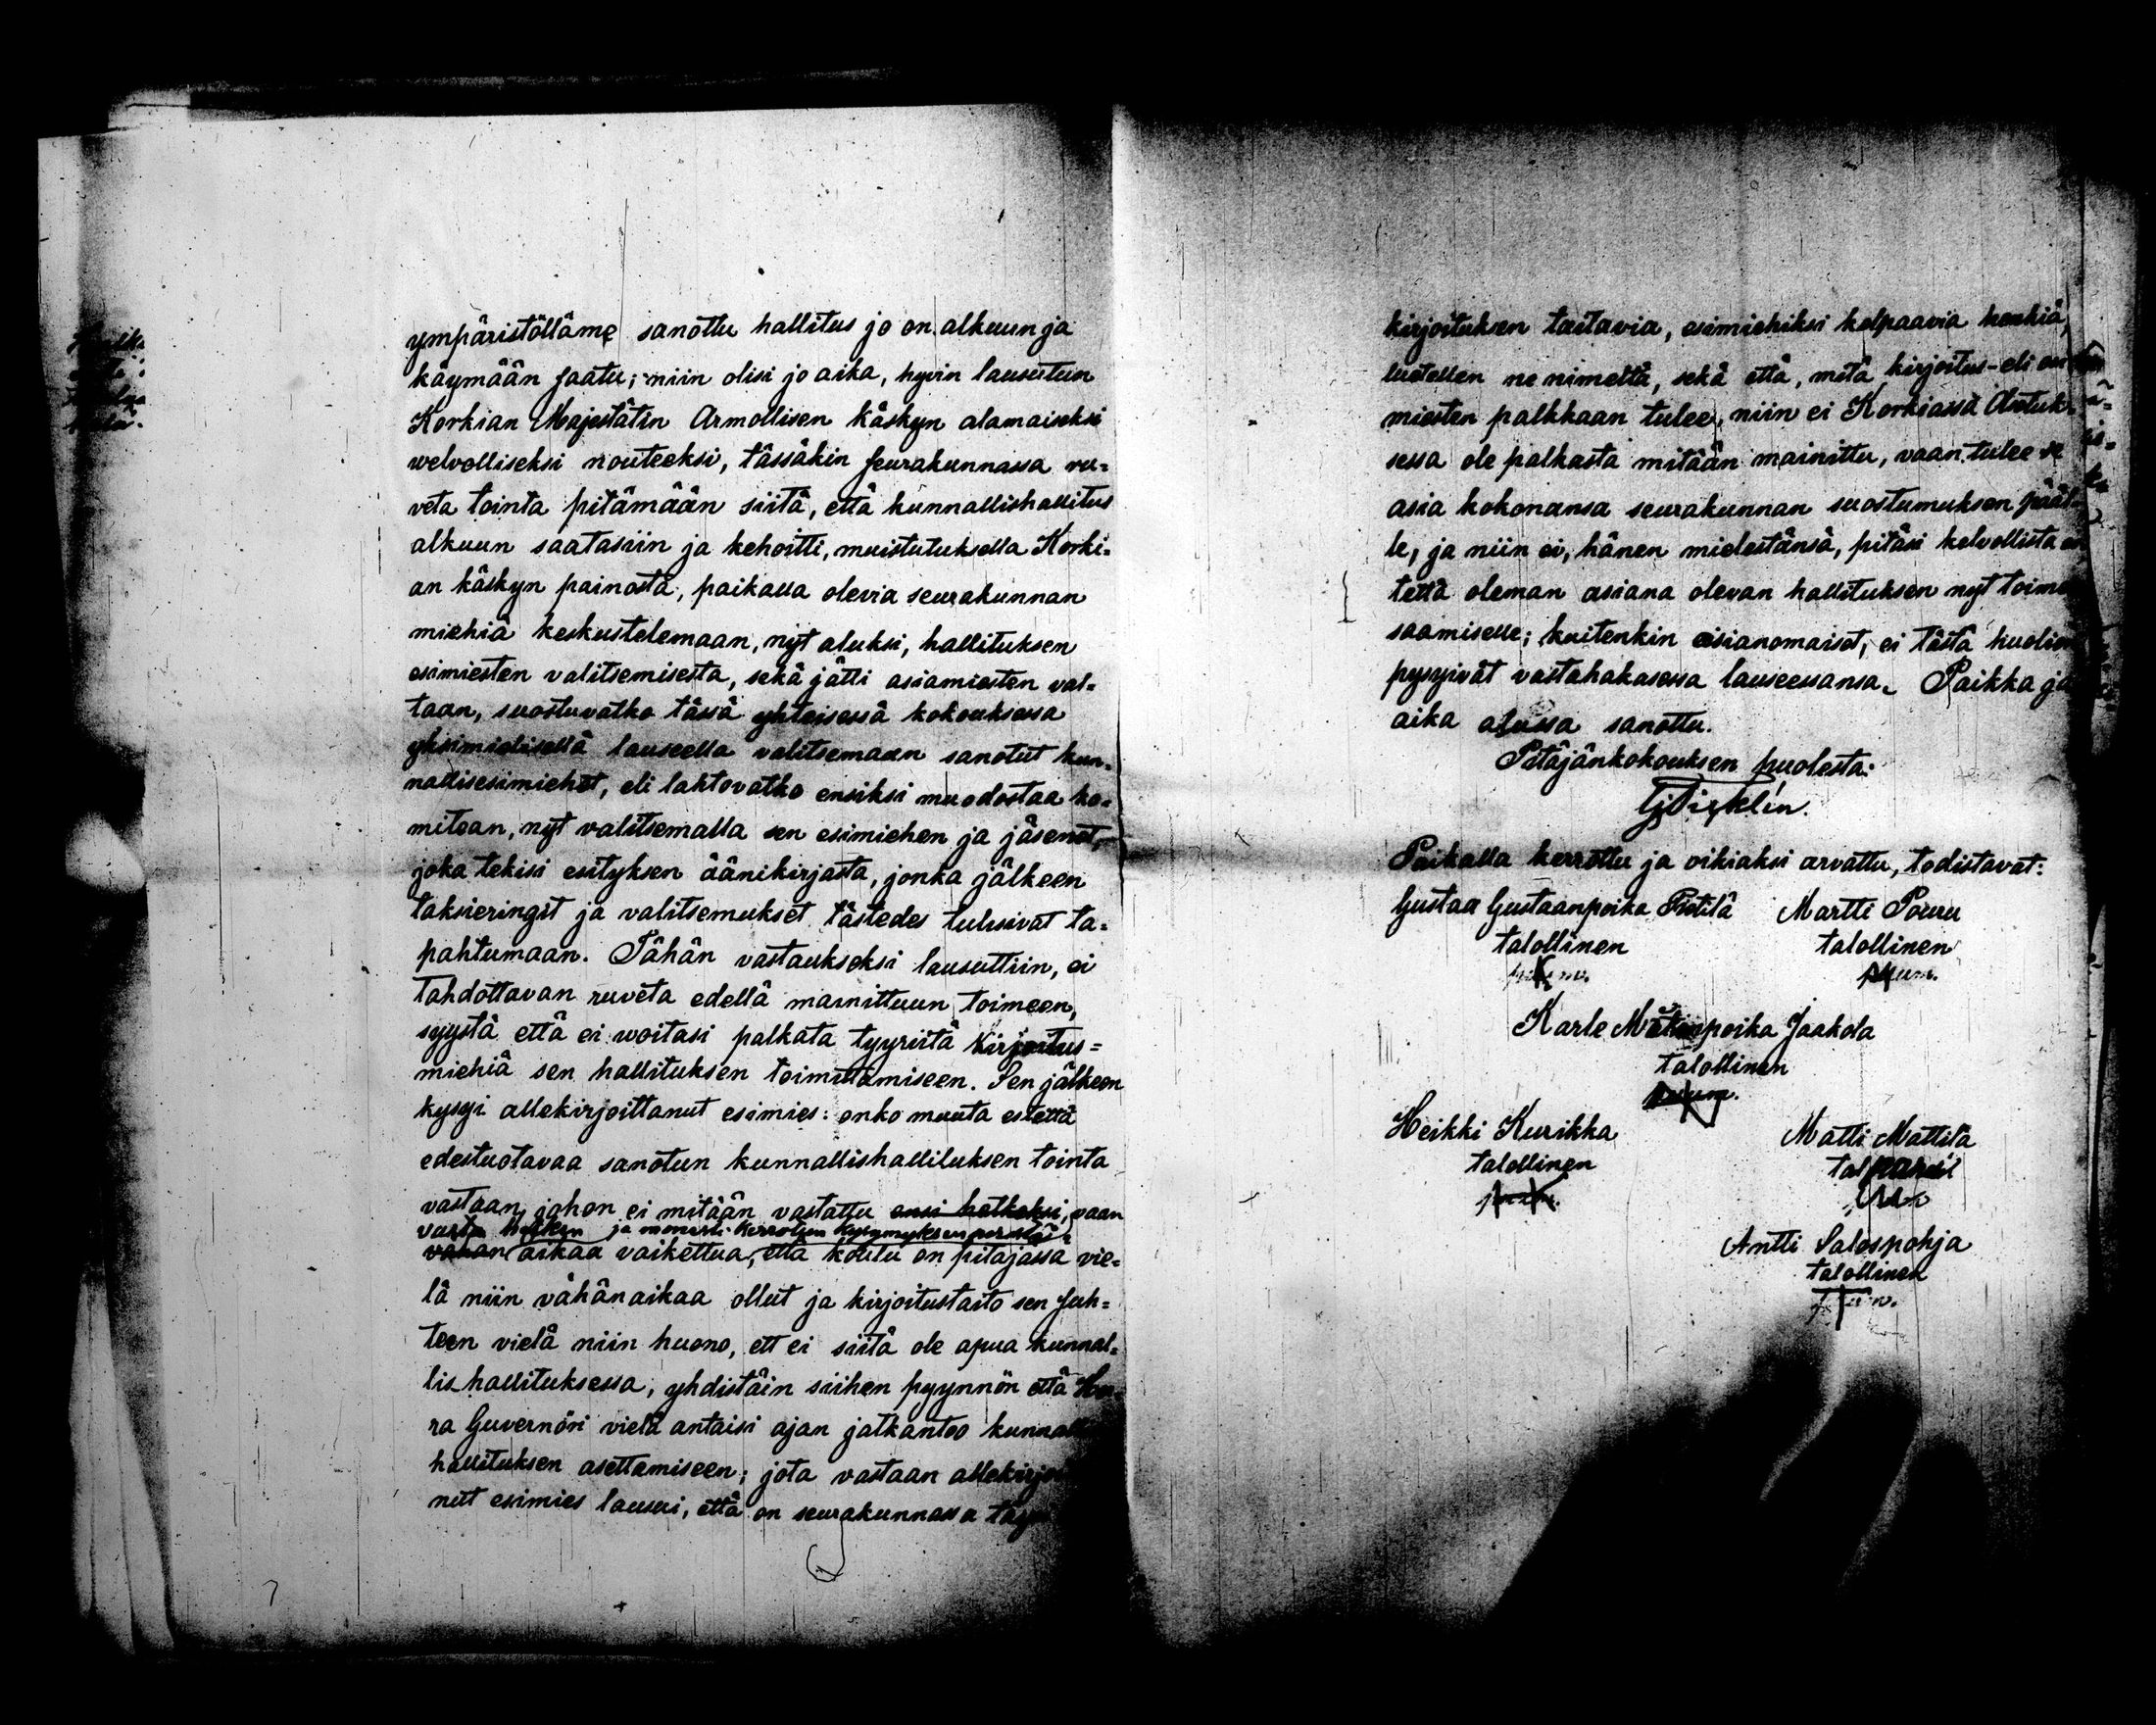 ympäristöllämę sanottu hallitus jo on alkuun ja
käymään saatu; niin olisi jo aika, hyvin lausutun
Korkian Majestätin Armollisen käskyn alamaiseksi
welvolliseksi nouteeksi, tässäkin seurakunnassa ru-
veta tointa pitämään siitä, että kunnallishallitus
alkuun saatasiin ja kehoitti, muistutuksella Korki-
an käskyn painosta, paikalla olevia seurakunnan
miehiä keskustelemaan, nyt aluksi, hallituksen
esimiesten valitsemisesta, sekä jätti asiamiesten val-
taan, suostuvatko tässä yhteisessä kokouksessa
yksimielisellä lauseella valitsemaan sanotut kun-
nallisesimiehet, eli lahtovatko ensiksi muodostaa ko-
mitean, nyt valitsemalla sen esimiehen ja jäsenet,
joka tekisi esityksen äänikirjasta, jonka jälkeen
taksieringit ja valitsemukset tästedes tulisivat ta-
pahtumaan. Tähän vastaukseksi lausuttiin, ei
tahdottavan ruveta edellä mainittuun toimeen,
syystä että ei woitasi palkata tyyriitä kirjoitus=
miehiä sen hallituksen toimittamiseen. Sen jälkeen
kysyi allekirjoittanut esimies: onko muuta estettä
edestuotavaa sanotun kunnallishallituksen tointa
vastaan, johon ei mitään vastattu ensi hetkeksi, vaan
vasta hetken ja monesti kerrotun kysymyksen perästä
vähän aikaa vaikettua, että koulu on pitäjässä vie-
lä niin vähän aikaa ollut ja kirjoitustaito sen suh=
teen vielä niin huono, ett ei siitä ole apua kunnal-
lis hallituksessa, yhdistäin siihen pyynnön että Her-
ra Guvernöri vielä antaisi ajan jatkantoo
hallituksen asettamiseen; jota vastaan
nut esimies lausui, että on seurakunnassa
kirjoituksen taitavia, esimiehiksi kelpaavia henkiä,
luetellen ne nimeltä, sekä että, mitä kirjoitus- eli esi
miesten palkkaan tulee, niin ei Korkiassa Asetuk-
sessa ole palkasta mitään mainittu, vaan tulee se
asia kokonansa seurakunnan suostumuksen pääl-
le, ja niin ei, hänen mielestänsä, pitäisi kelvollista es
tettä oleman asiana olevan hallituksen nyt
saamiselle; kuitenkin asianomaiset, ei tästä
pysyivät vastahakasessa lauseessansa. Paikka ja
aika alussa sanottu.
Pitäjänkokouksen puolesta:
Paikalla kerrottu ja oikiaksi arvattu, todistavat:
Gustaa Gustaanpoika Pistilä Martti Pouru
talollinen talollinen
Karle Matinpoika Jaakola
talollinen
Heikki Kurikka Matti Mattila
talollinen
Antti Salospohja
talollinen